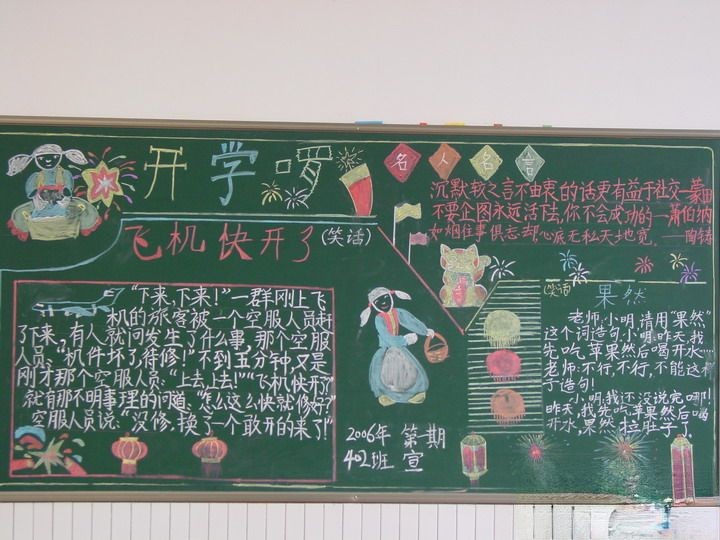 开学
名人名言
沉默较之言不由衷的话更有益于社交—蒙田
不要企图永远活下去,你不会成功的—萧伯纳
如烟往事俱忘却,心底无私天地宽。——陶铸
飞机快开了(笑话)
"下来,下来!"一群刚上飞
机的旅客被一个空服人员赶
了下来,有人就问发生了什么事,那个空服
人员:"机件坏了,待修!"不到五分钟,又是
刚才那个空服人员:"上去,上去!""飞机快开了"
就有那不明事理的问道:"怎么这么快就修好?"
空服人员说:"没修,换了一个敢开的来了!"
2006年 第期
402班 宣
(笑话) 果然
老师:小明,请用"果然"
这个词造句,小明:昨天,我
先吃苹果然后喝开水…
老师:不行,不行,不能这样
子造句!
小明:我还没说完哪!
昨天,我先吃苹果然后喝
开水,果然拉肚子了。